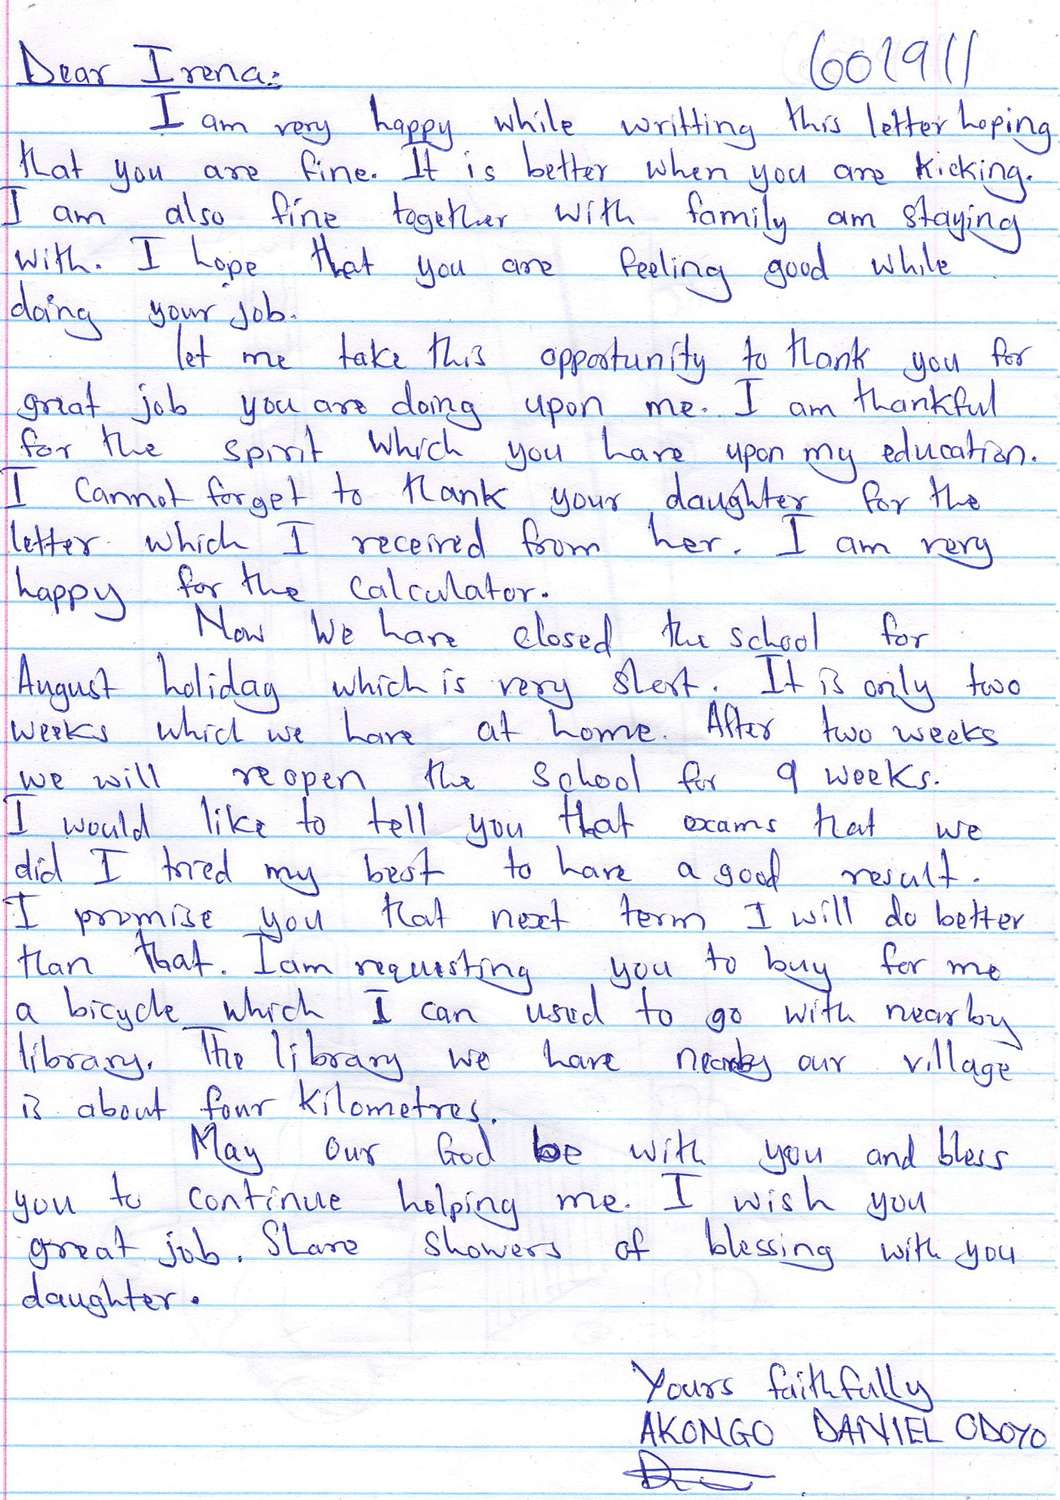 Dear Irena:
601911
I am very happy while writting this letter hoping
that you are fine. It is better when you are kicking.
I am also fine together with family am staying
with. I hope that you are feeling good while
doing your job.
let me take this opportunity to thank you for
great job you are doing upon me. I am thankful
for the spirit which you have upon my education.
I cannot forget to thank your daughter for the
letter which I received from her. I am very
happy for the calculator.
Now we have closed the school for
August holiday which is very short. It is only two
weeks which we have at home. After two weeks
we will reopen the school for 9 weeks.
I would like to tell you that exams that we
did I tried my best to have a good result.
I promise you that next term I will do better
than that. I am requesting you to buy for me
a bicycle which I can used to go with nearby
library. The library we have nearby our village
is about four kilometres.
May our God be with you and bless
you to continue helping me. I wish you
great job. Share showers of blessing with you
daughter.
Yours faithfully
AKONGO DANIEL ODOYO